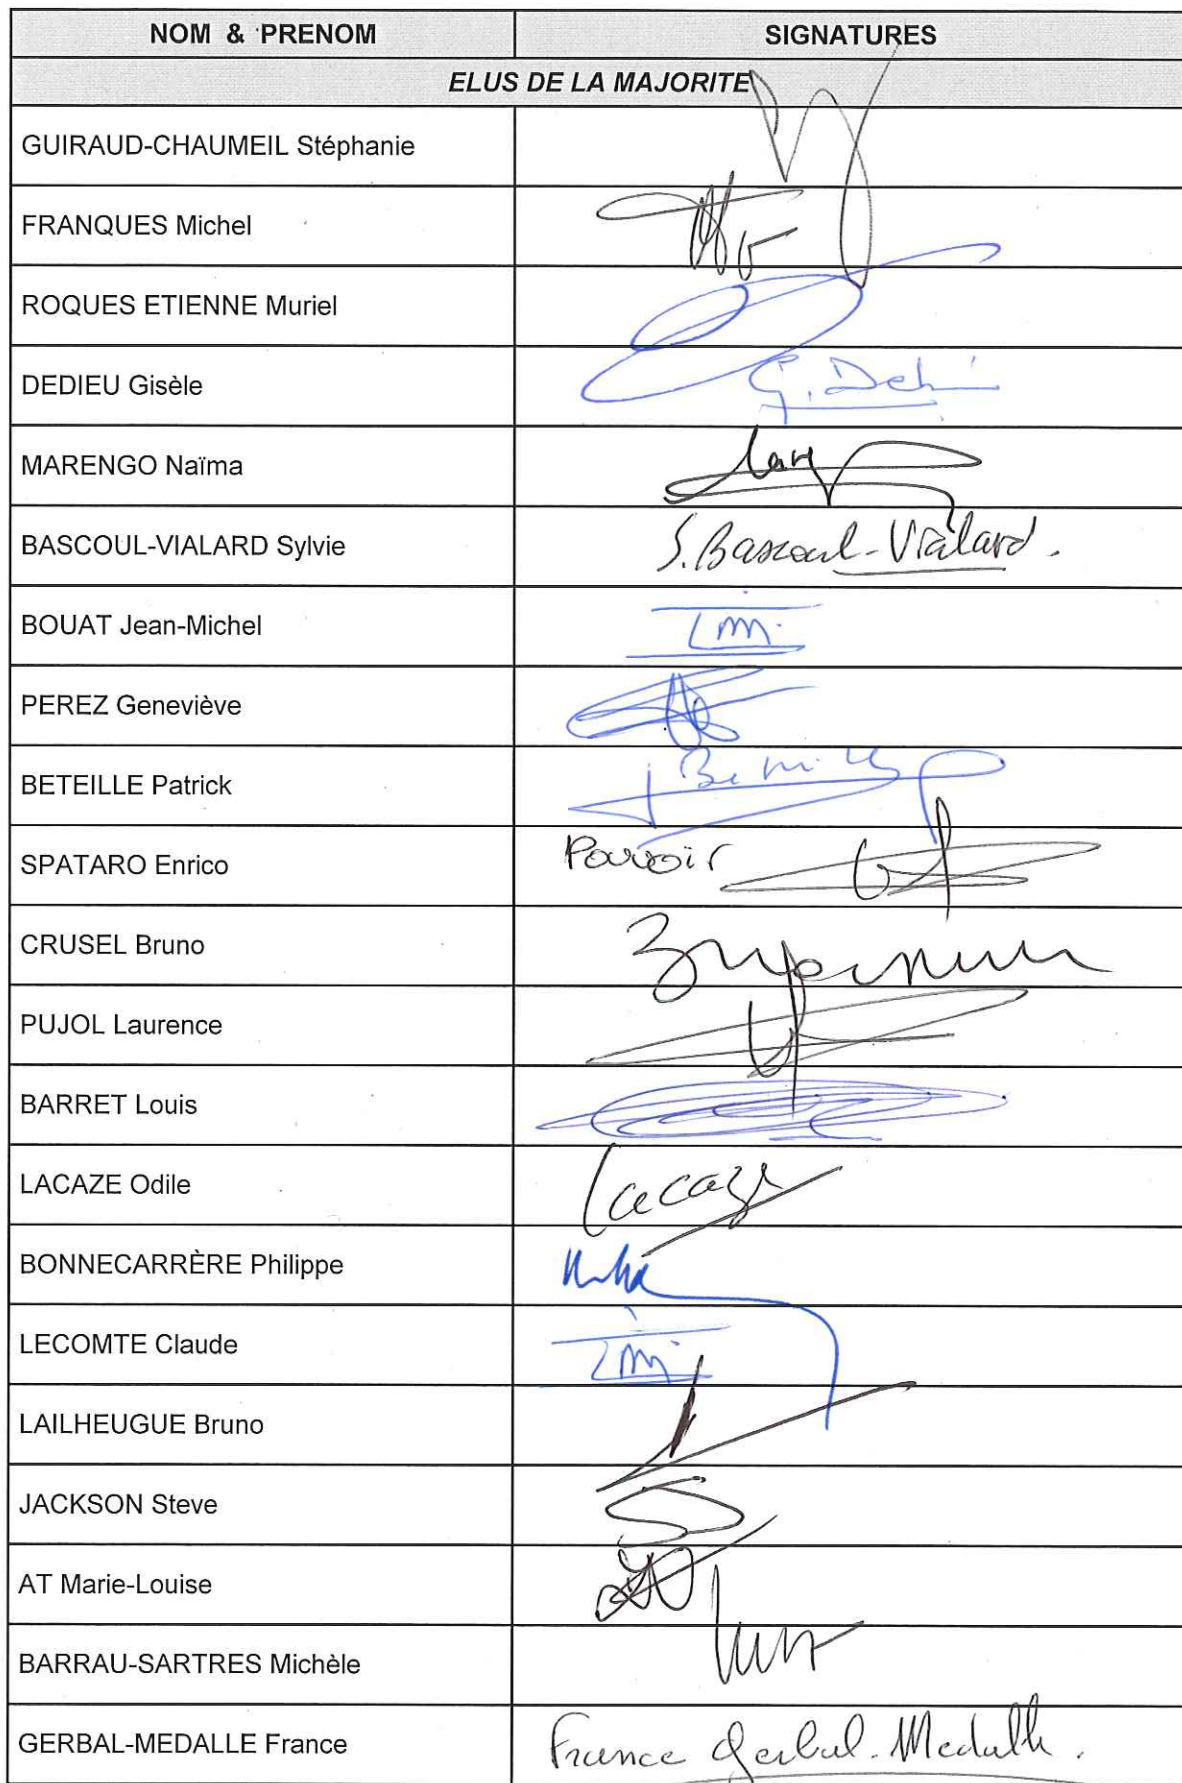 NOM & PRENOM SIGNATURES
ELUS DE LA MAJORITE
GUIRAUD-CHAUMEIL Stéphanie
FRANQUES Michel
ROQUES ETIENNE Muriel
DEDIEU Gisèle
MARENGO Naïma
BASCOUL-VIALARD Sylvie S. Bascoul-Vialard.
BOUAT Jean-Michel
PEREZ Geneviève
BETEILLE Patrick
SPATARO Enrico Pouvoir
CRUSEL Bruno
PUJOL Laurence
BARRET Louis
LACAZE Odile Lacaze
BONNECARRÈRE Philippe
LECOMTE Claude
LAILHEUGUE Bruno
JACKSON Steve
AT Marie-Louise
BARRAU-SARTRES Michèle
GERBAL-MEDALLE France France Gerbal-Medalle.